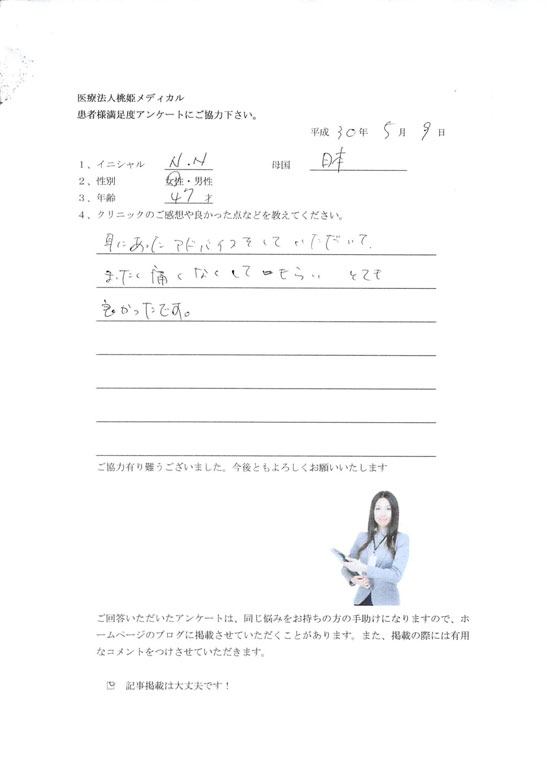 医療法人桃姫メディカル
患者様満足度アンケートにご協力下さい。
平成 30 年 5 月 9 日
1、イニシャル N.N 母国 日本
2、性別 女性・男性
3、年齢 47 才
4、クリニックのご感想や良かった点などを教えてください。
耳にあったアドバイスをしていただいて、
まったく痛くなくしてもらい とても
良かったです。
ご協力有り難うございました。今後ともよろしくお願いいたします
ご回答いただいたアンケートは、同じ悩みをお持ちの方の手助けになりますので、ホ
ームページのブログに掲載させていただくことがあります。また、掲載の際には有用
なコメントをつけさせていただきます。
記事掲載は大丈夫です！